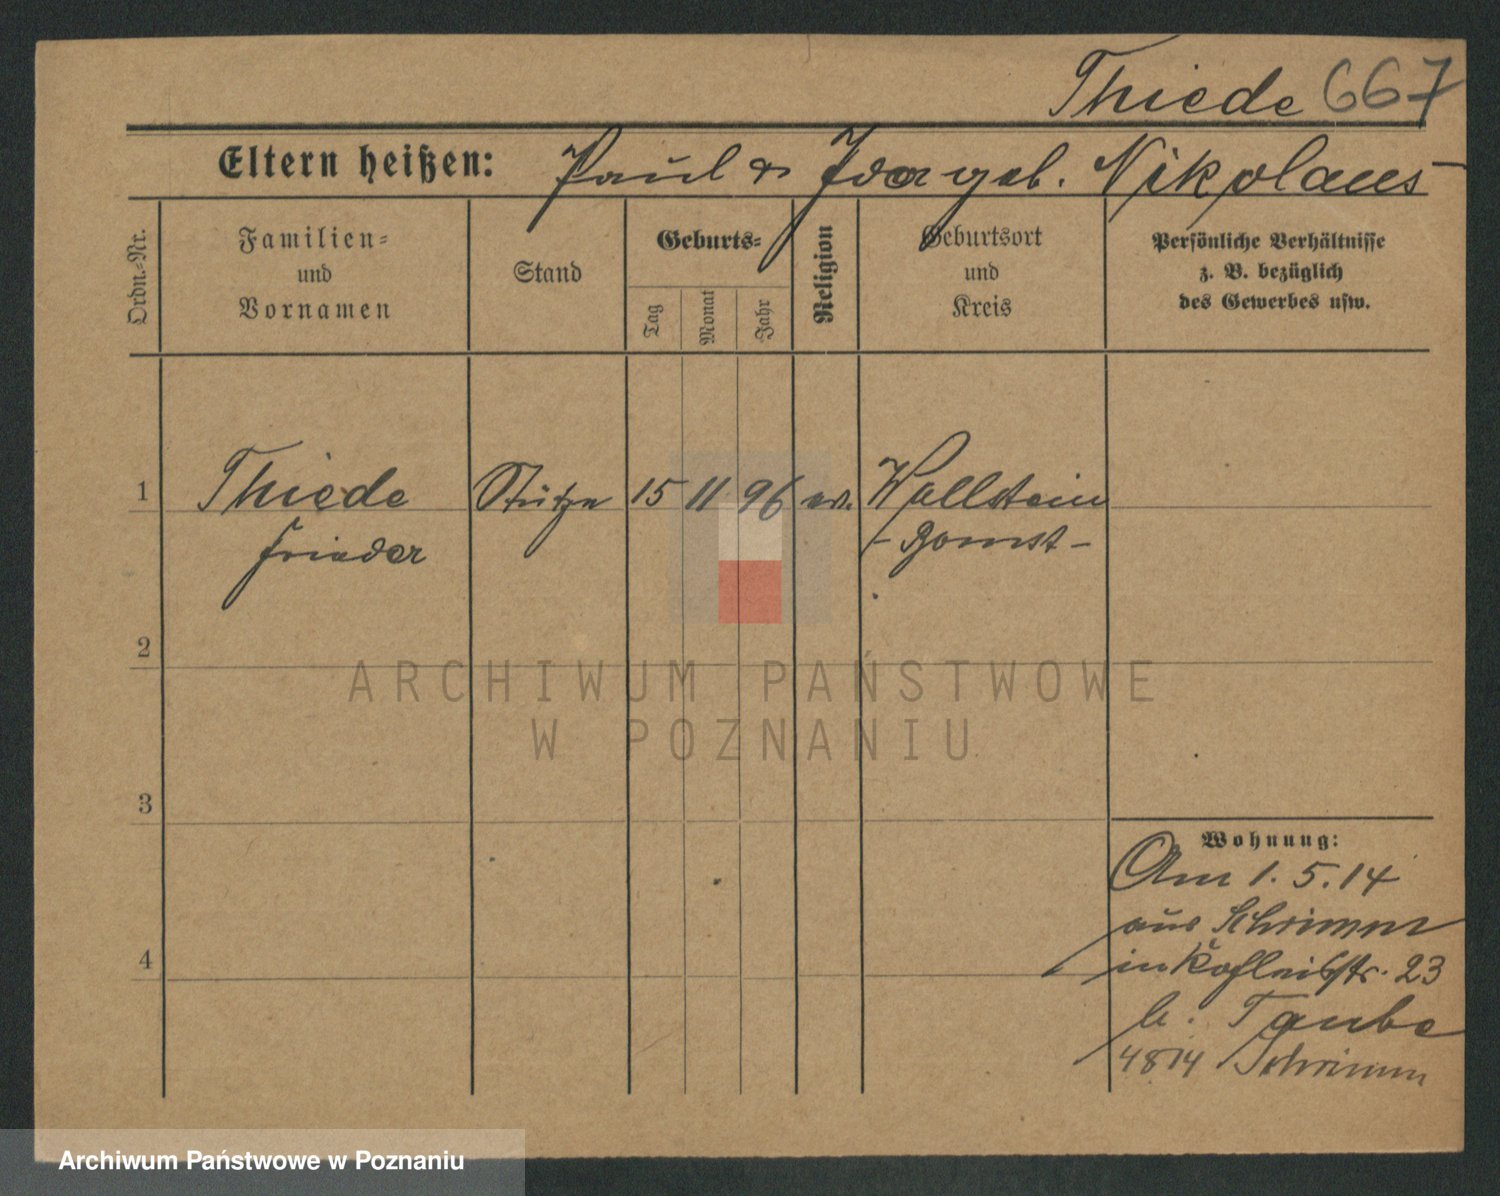 Thiede 667
Eltern heißen: Paul & Ida geb. Nikolaus
Ordn.-Nr.
Familien-
und
Vornamen
Stand
Geburts-
Tag
Monat
Jahr
Religion
Geburtsort
und
Kreis
Persönliche Verhältnisse
z. B. bezüglich
des Gewerbes usw.
1 Thiede Stütze 15 11 96 ev. Wollstein
- Bomst -
2
ARCHIWUM PAŃSTWOWE
W POZNANIU
3
Wohnung:
Am 1. 5. 14
aus Schrimm
in 23
b. Taube
4
4814 Schrimm
Archiwum Państwowe w Poznaniu